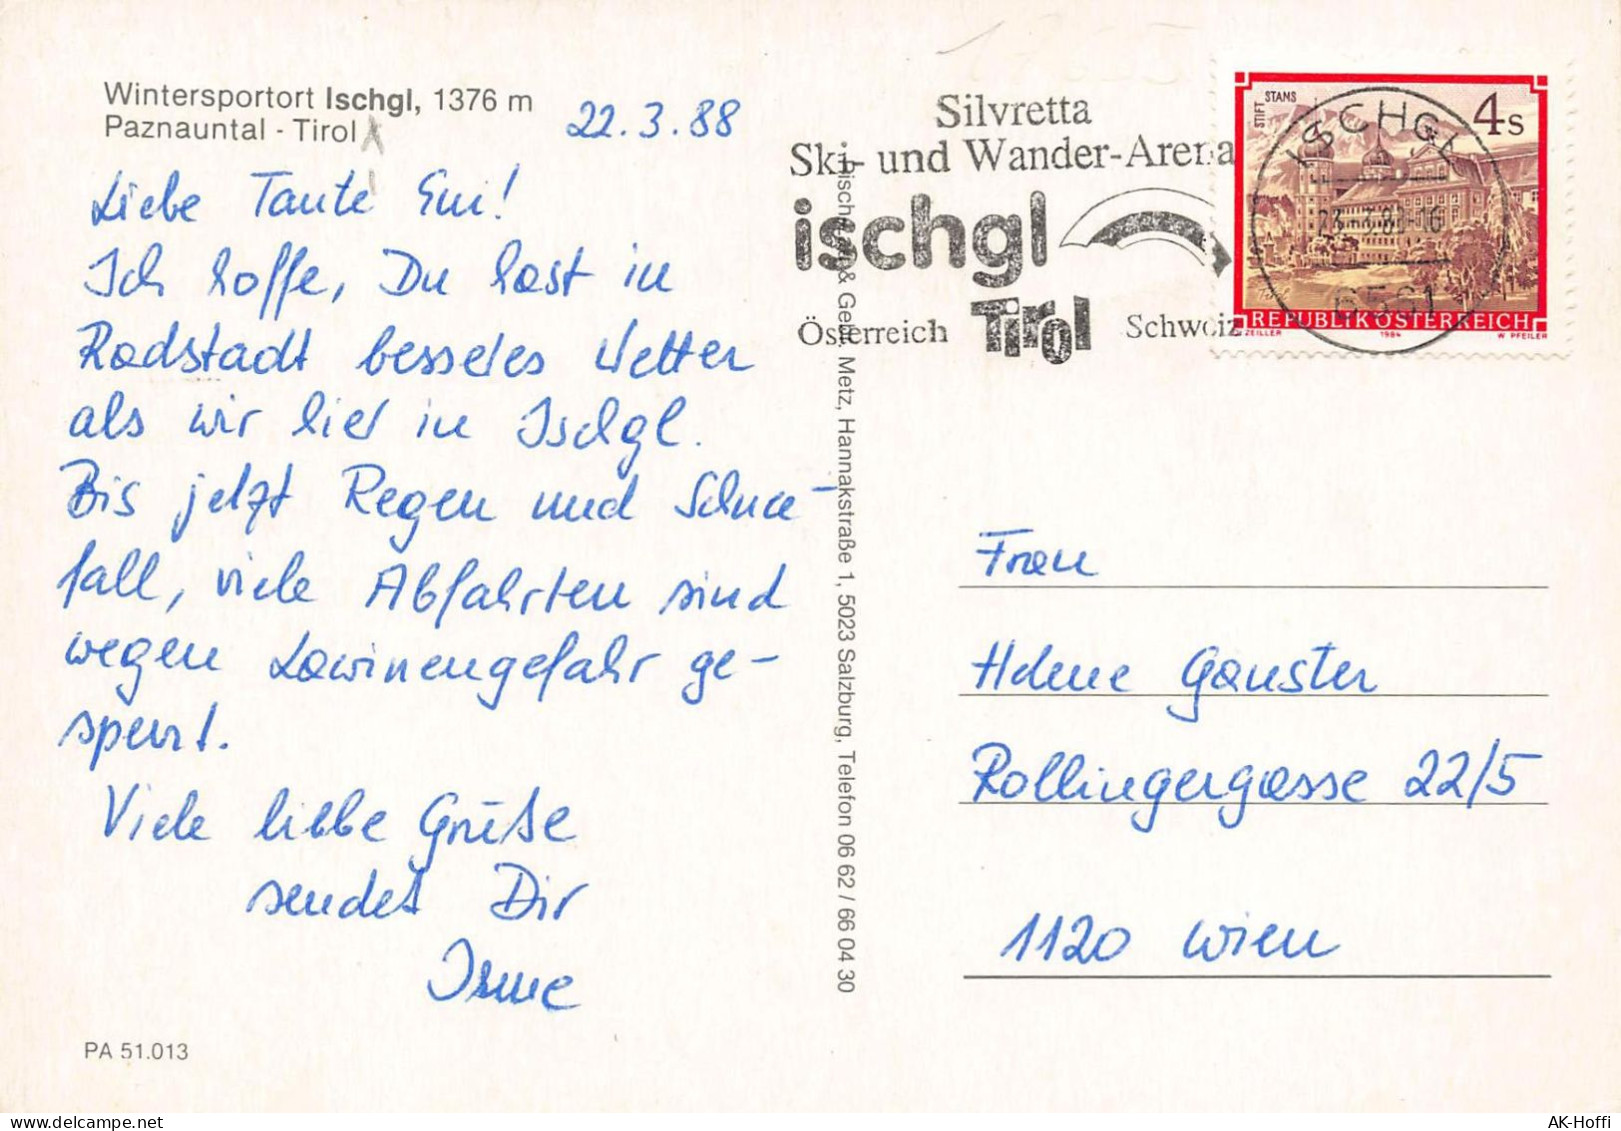 Wintersportort Ischgl, 1376 m
Paznauntal - Tirol
22.3.88
Liebe Tante Emi!
Ich hoffe, Du hast in
Radstadt besseres Wetter
als wir hier in Ischgl.
Bis jetzt Regen und Schnee-
fall, viele Abfahrten sind
wegen Lawinengefahr ge-
sperrt.
Viele liebe Grüße
sendet Dir
Irme
PA 51.013
& Metz, Hannakstraße 1, 5023 Salzburg, Telefon 06 62 / 66 04 30
Silvretta
Ski- und Wander-Arena
ischgl
Tirol
Österreich
Schweiz
STIFT STAMS
4s
REPUBLIK ÖSTERREICH
ZEILLER 1984 W PFEILER
ISCHGL
23.-3.88-16
6561
Frau
Helene Gauster
Rollingergasse 22/5
1120 Wien
AK-Hoffi